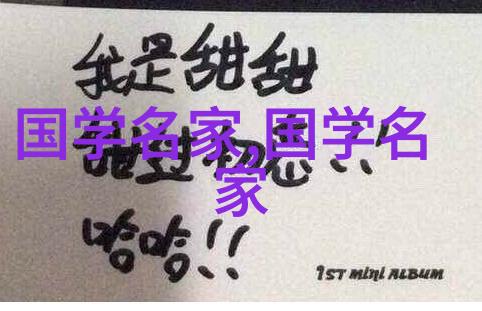 我是甜甜
国学名家,国学名
家
甜过初恋!!
哈哈!!
1ST MINI ALBUM